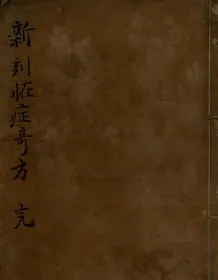 新刻怪症奇方 完